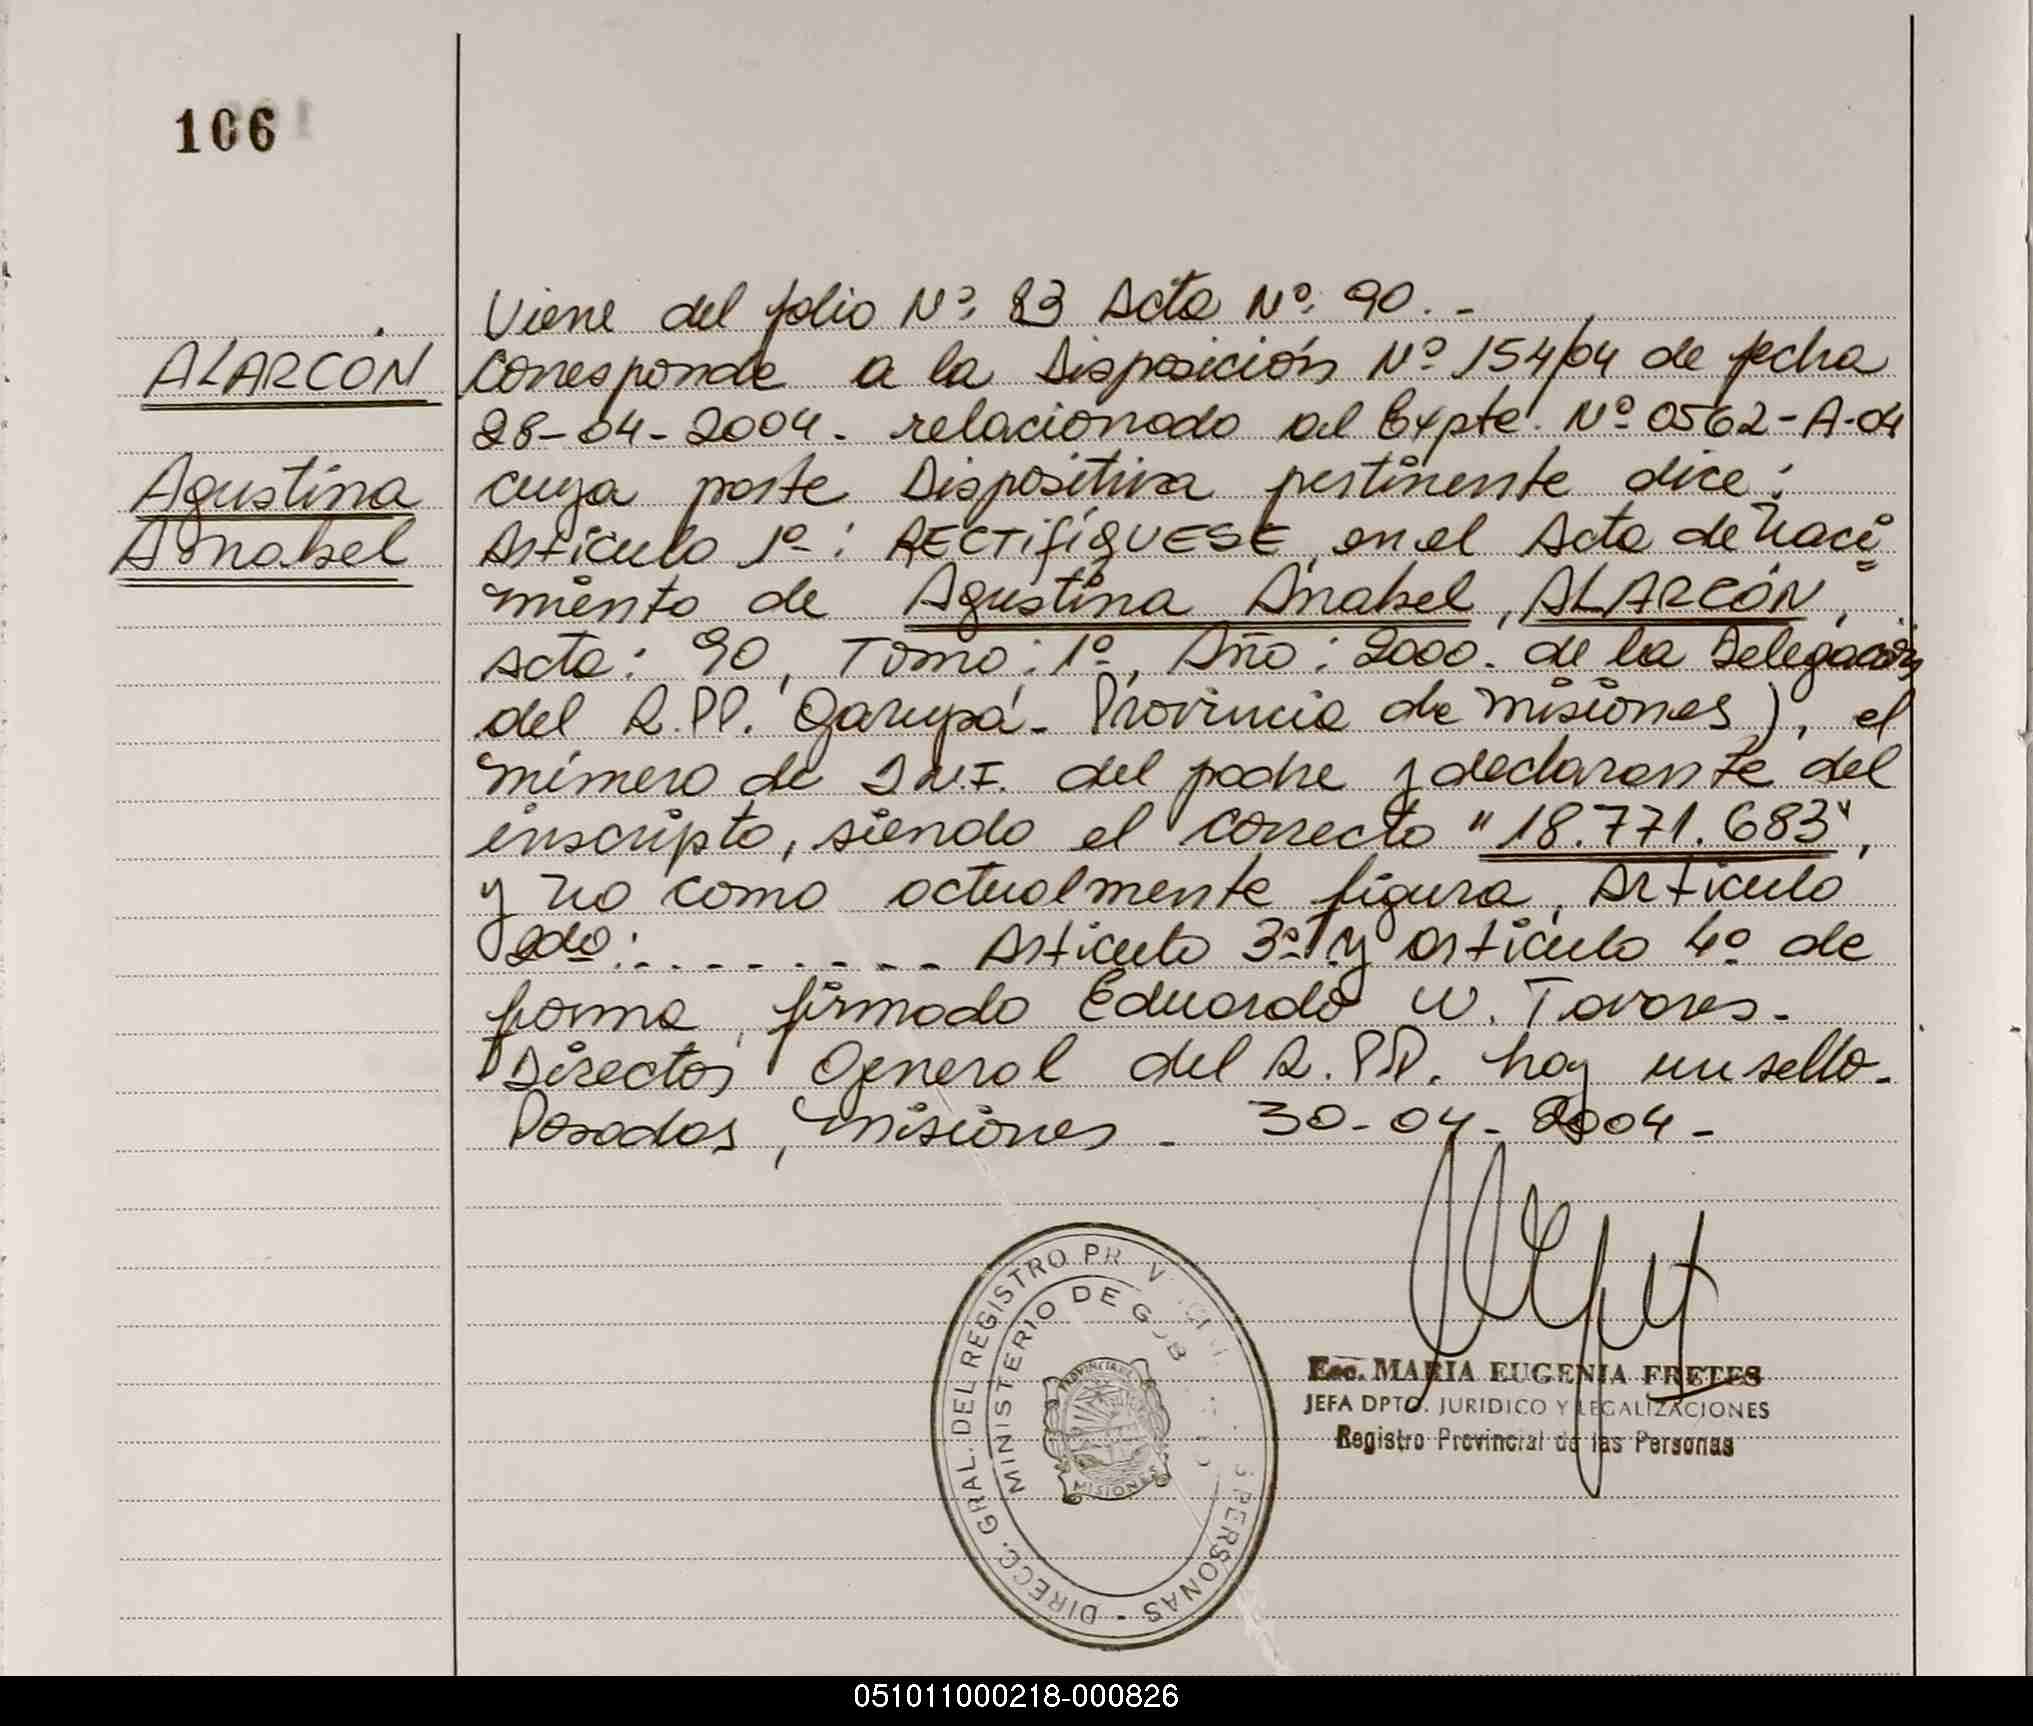 106
Viene del folio Nº: 83 Acta Nº: 90.-
ALARCÓN
Corresponde a la Disposición Nº 154/04 de fecha
28-04-2004. relacionado al Expte. Nº 0562-A-04
Agustina
cuya parte Dispositiva pertinente dice:
Anabel
Artículo 1º: RECTIFÍQUESE, en el Acta de Naci
miento de Agustina Anabel, ALARCÓN,
Acta: 90, Tomo: 1º, Año: 2000. de la Delegación
del R.PP. Garupá- Provincia de Misiones), el
número de D.N.I. del padre y declarante del
inscripto, siendo el correcto "18.771.683",
y no como actualmente figura. Artículo
2do:.-------- Artículo 3º y artículo 4º de
forma, firmado Eduardo W. Tavares.
Director General del R.PP. hay un sello.
Posadas, Misiones - 30-04-2004-
DIRECC. GRAL. DEL REGISTRO PERSONAS
MINISTERIO DE
PROVINCIA
MISIONES
Esc. MARIA EUGENIA FRETES
JEFA DPTO. JURIDICO Y LEGALIZACIONES
Registro Provincial de las Personas
051011000218-000826